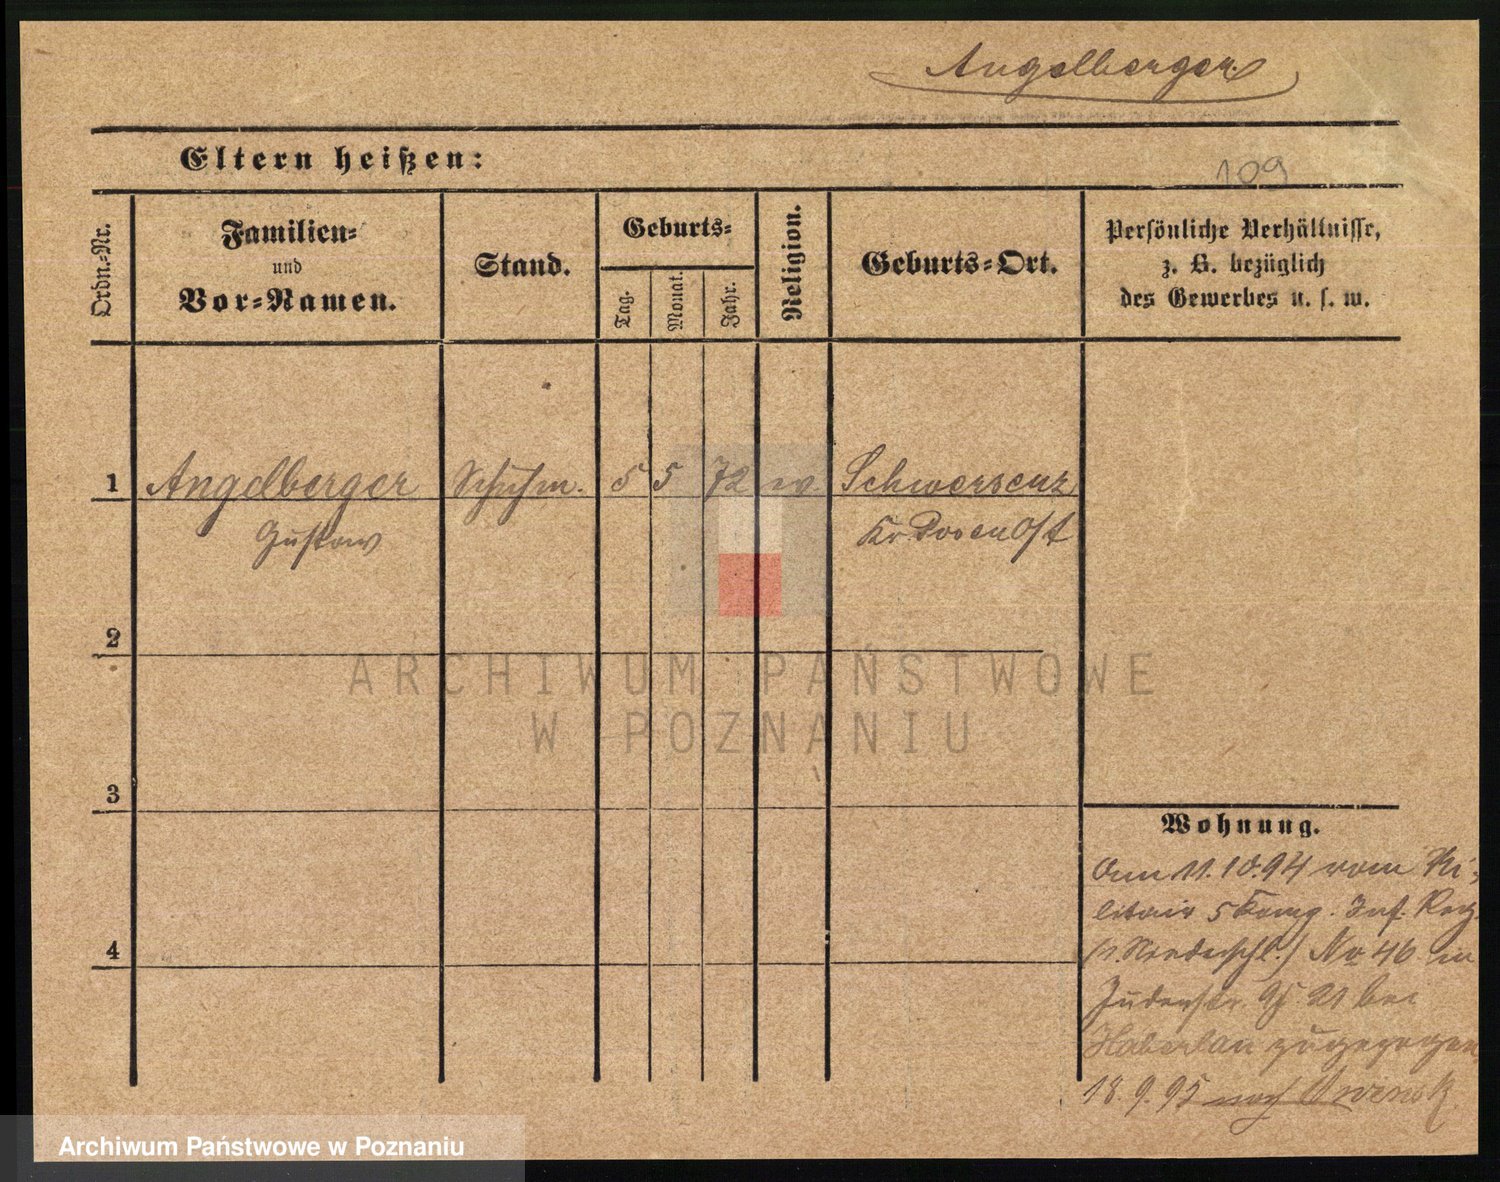 Angelberger
109
Eltern heißen:
Ordn.-Nr.
Familien-
und
Vor-Namen.
Stand.
Geburts-
Tag.
Monat.
Jahr.
Religion.
Geburts-Ort.
Persönliche Verhältnisse,
z. B. bezüglich
des Gewerbes u. s. w.
1 Angelberger Schuhm. 5 5 72 ev Schwersenz
Gustav Kr Posen Ost
2
3
4
Wohnung.
Am 11.10.94 vom Mi-
litair 5 Komp. Inf. Reg.
(1. Niederschl.) No 46 in
Judenstr. 21 bei
Haberlau zugezogen
18.9.95 nach Owinsk
ARCHIWUM PAŃSTWOWE
W POZNANIU
Archiwum Państwowe w Poznaniu